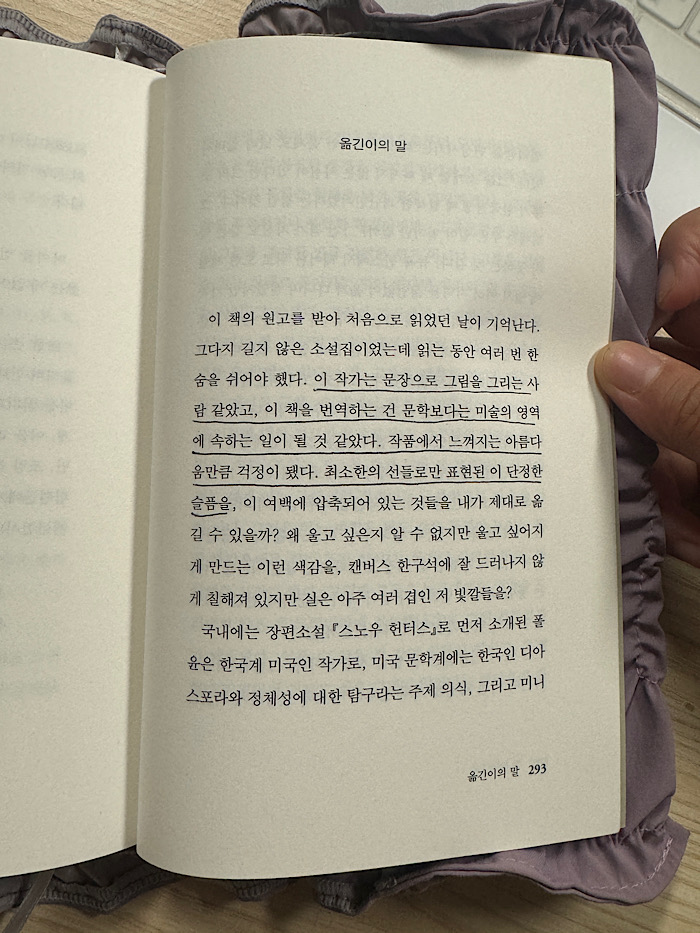 옮긴이의 말
이 책의 원고를 받아 처음으로 읽었던 날이 기억난다.
그다지 길지 않은 소설집이었는데 읽는 동안 여러 번 한
숨을 쉬어야 했다. 이 작가는 문장으로 그림을 그리는 사
람 같았고, 이 책을 번역하는 건 문학보다는 미술의 영역
에 속하는 일이 될 것 같았다. 작품에서 느껴지는 아름다
움만큼 걱정이 됐다. 최소한의 선들로만 표현된 이 단정한
슬픔을, 이 여백에 압축되어 있는 것들을 내가 제대로 옮
길 수 있을까? 왜 울고 싶은지 알 수 없지만 울고 싶어지
게 만드는 이런 색감을, 캔버스 한구석에 잘 드러나지 않
게 칠해져 있지만 실은 아주 여러 겹인 저 빛깔들을?
국내에는 장편소설 『스노우 헌터스』로 먼저 소개된 폴
윤은 한국계 미국인 작가로, 미국 문학계에는 한국인 디아
스포라와 정체성에 대한 탐구라는 주제 의식, 그리고 미니
옮긴이의 말 293